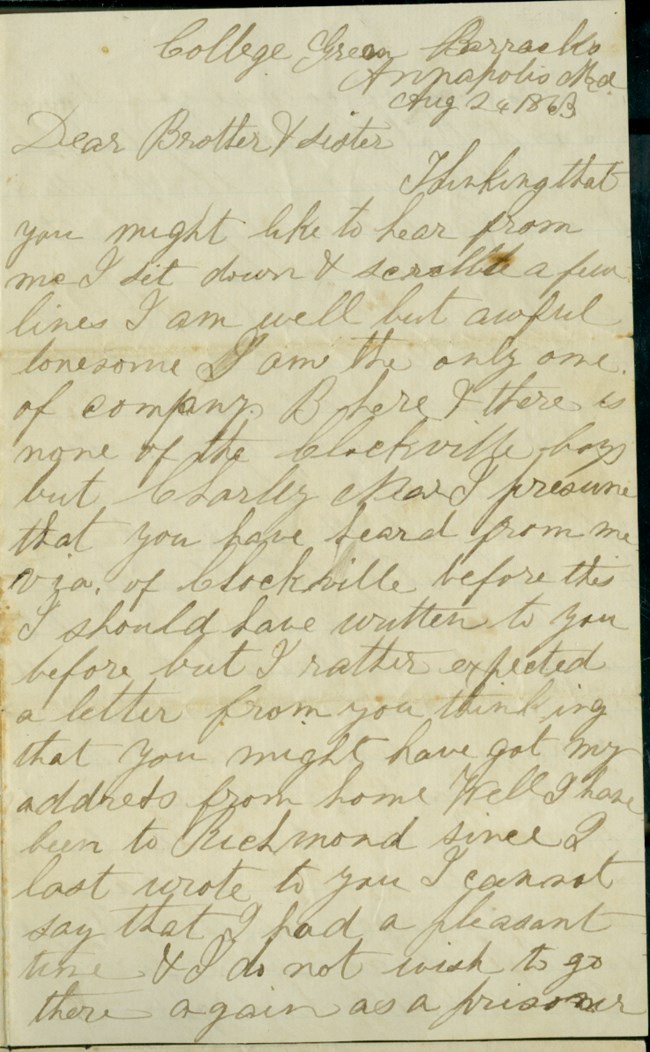 College Green Barracks
Annapolis Md
Aug 24 1863
Dear Brother & sister
Thinking that
you might like to hear from
me I sit down & scrabble a few
lines I am well but awful
lonesome I am the only one
of company B here & there is
none of the Clockville boys
but Charley I presume
that you have heard from me
via. of Clockville before this
I should have written to you
before but I rather expected
a letter from you thinking
that you might have got my
address from home Well I have
been to Richmond since I
last wrote to you I cannot
say that I had a pleasant
time & I do not wish to go
there again as a prisoner